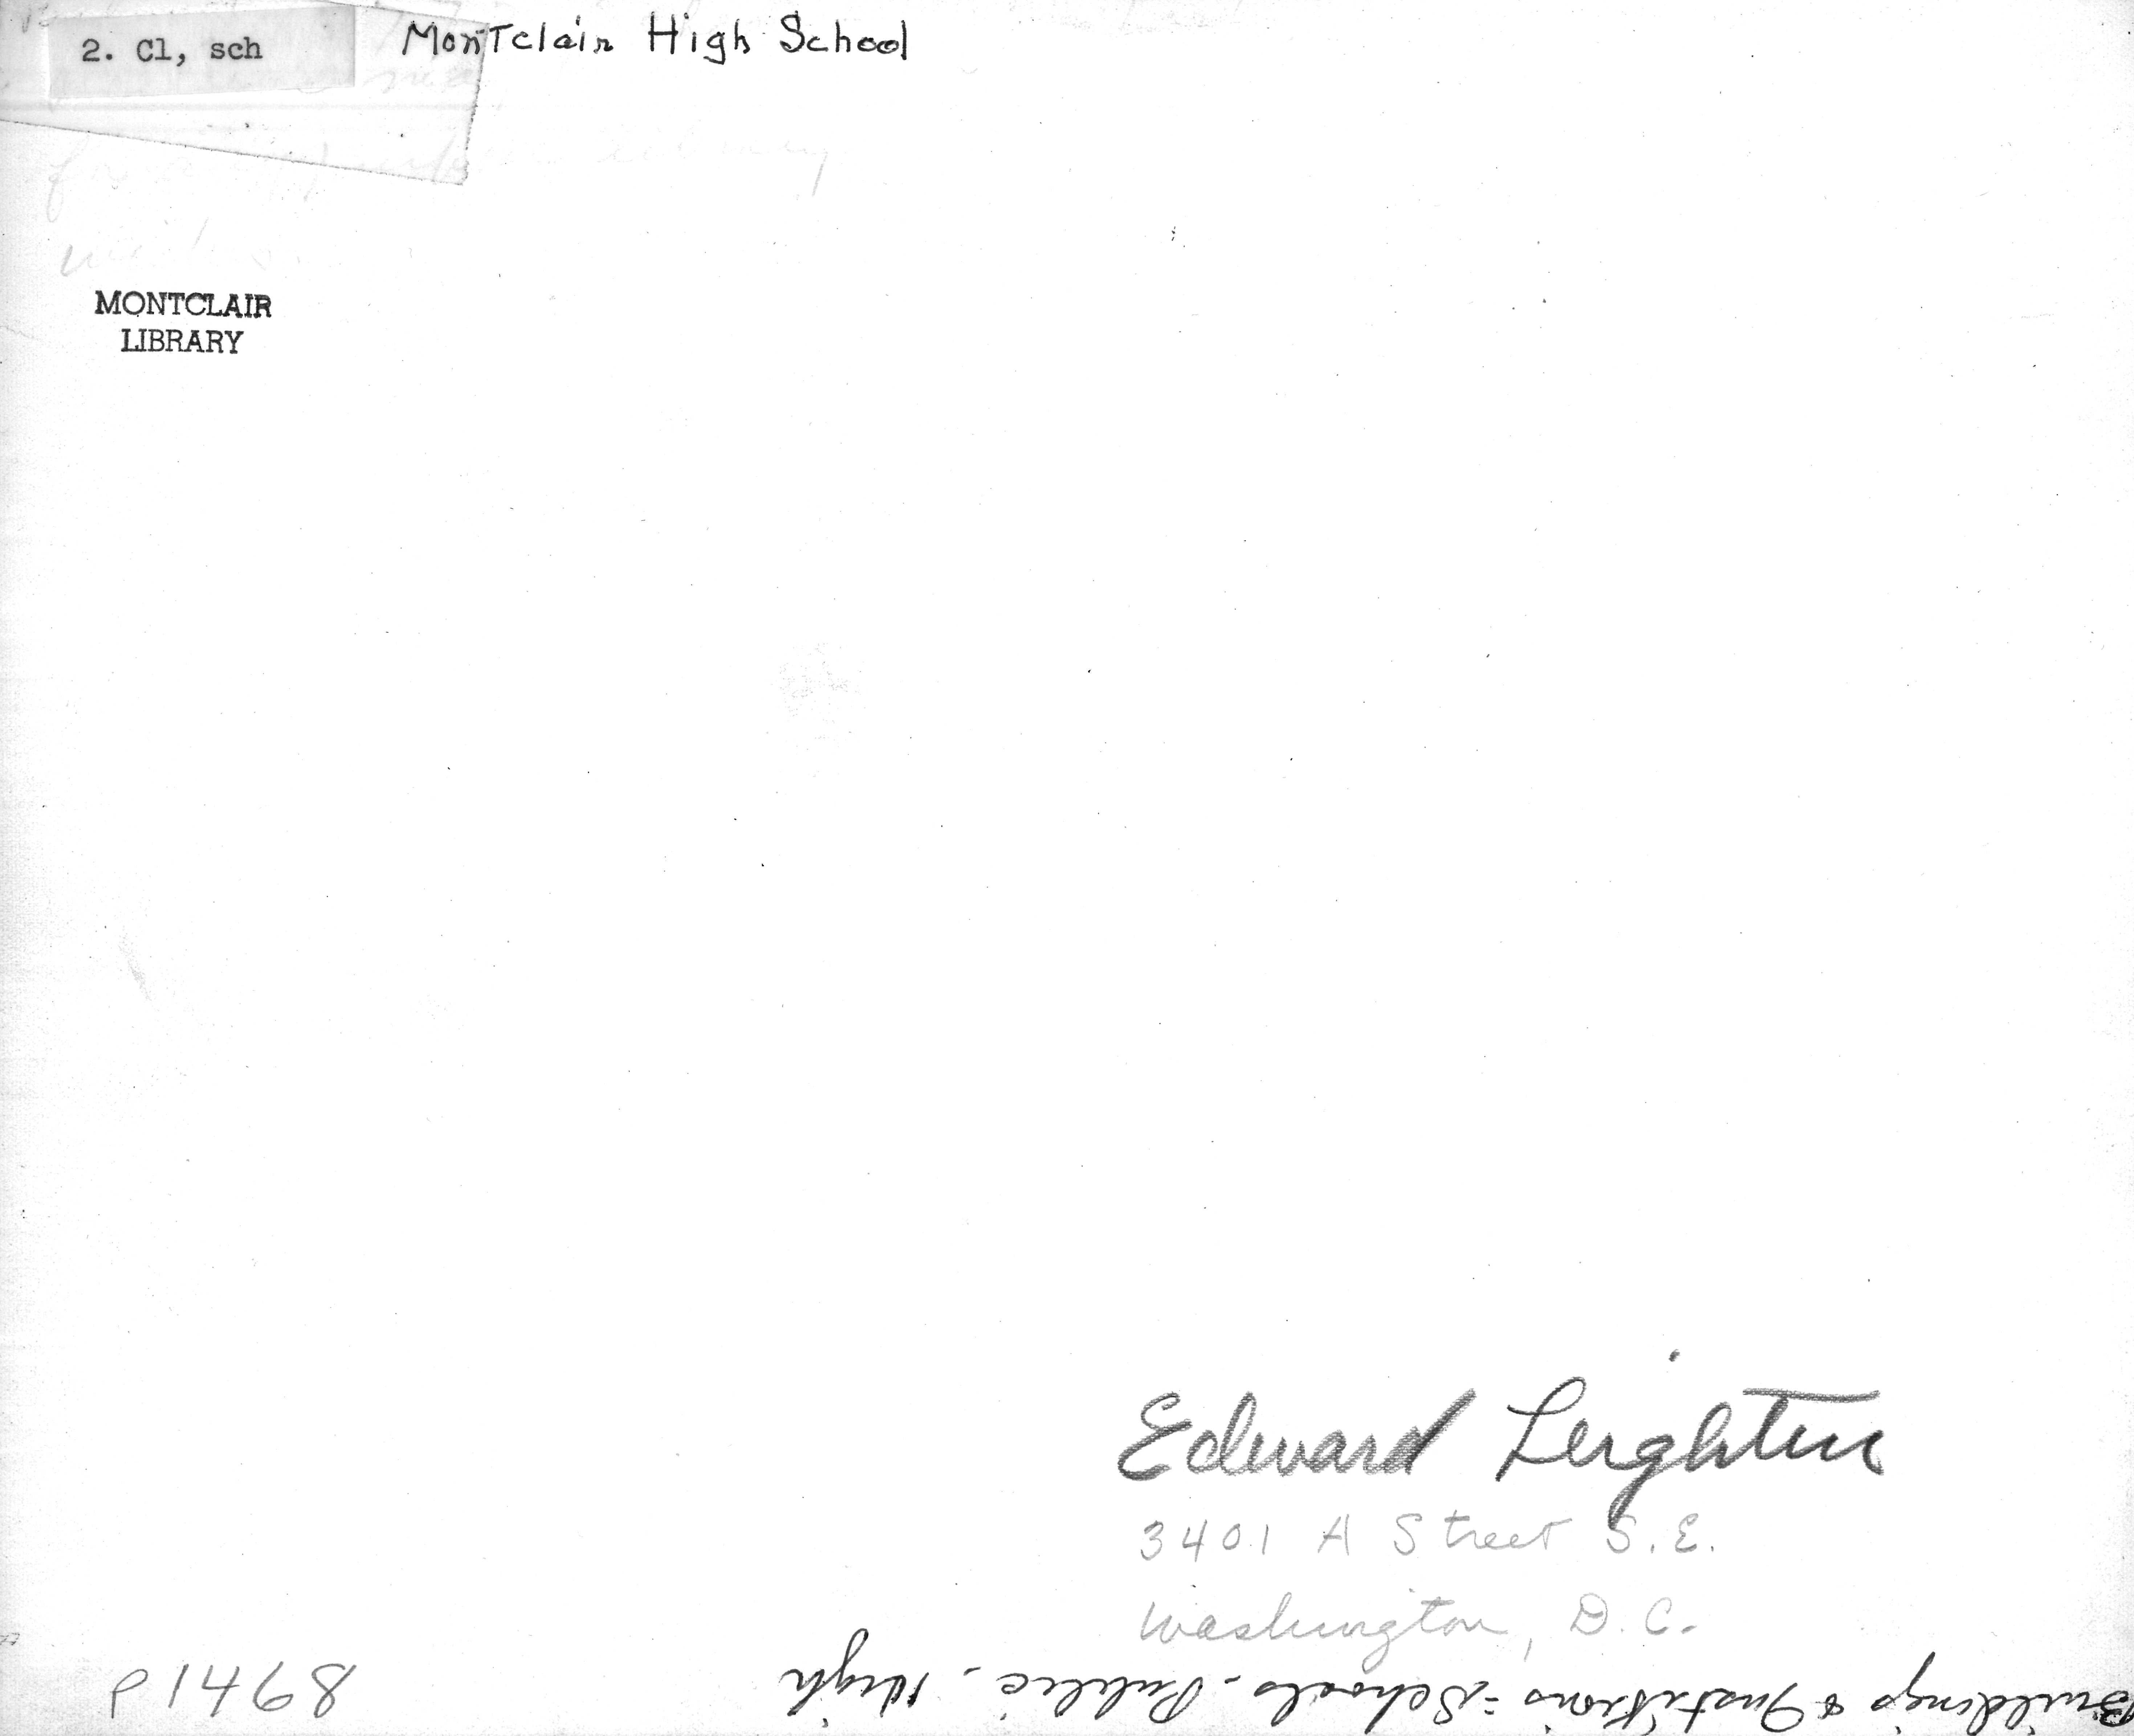 2. Cl, sch
Montclair High School
MONTCLAIR
LIBRARY
Edward Leighton
3401 A Street S.E.
Washington, D.C.
P1468
Buildings & Institutions - Schools - Public - High